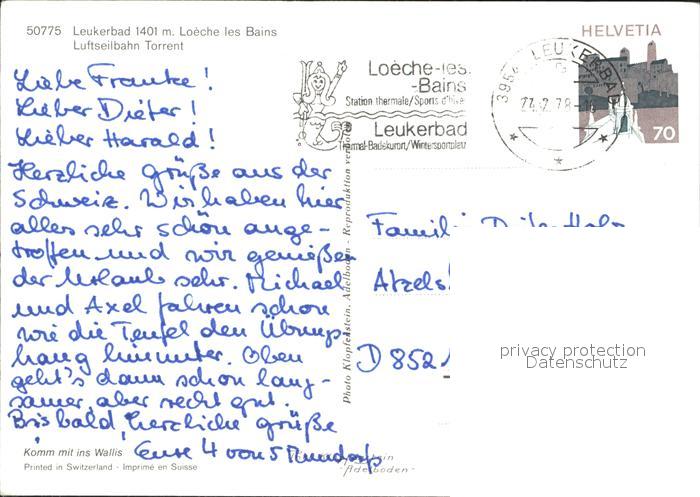 50775 Leukerbad 1401 m. Loèche les Bains
Luftseilbahn Torrent
Liebe Frauke!
Lieber Dieter!
Lieber Harald!
Herzliche Grüße aus der
Schweiz. Wir haben hier
alles sehr schön ange-
troffen und wir genießen
der Urlaub sehr. Michael
und Axel fahren schon
wie die Teufel den Übungs-
hang hinunter. Oben
geht's dann schon lang-
samer, aber recht gut.
Bis bald, herzliche Grüße
Eure 4 von
Komm mit ins Wallis
Printed in Switzerland - Imprimé en Suisse
Photo Klopfenstein, Adelboden - Reproduktion verboten
Adelboden
Loèche-les-
-Bains
Station thermale/Sports d'hiver
Leukerbad
Thermal-Badekurort/Wintersportplatz
3954 LEUKERBAD
HELVETIA
70
Atzels
D 852
privacy protection
Datenschutz